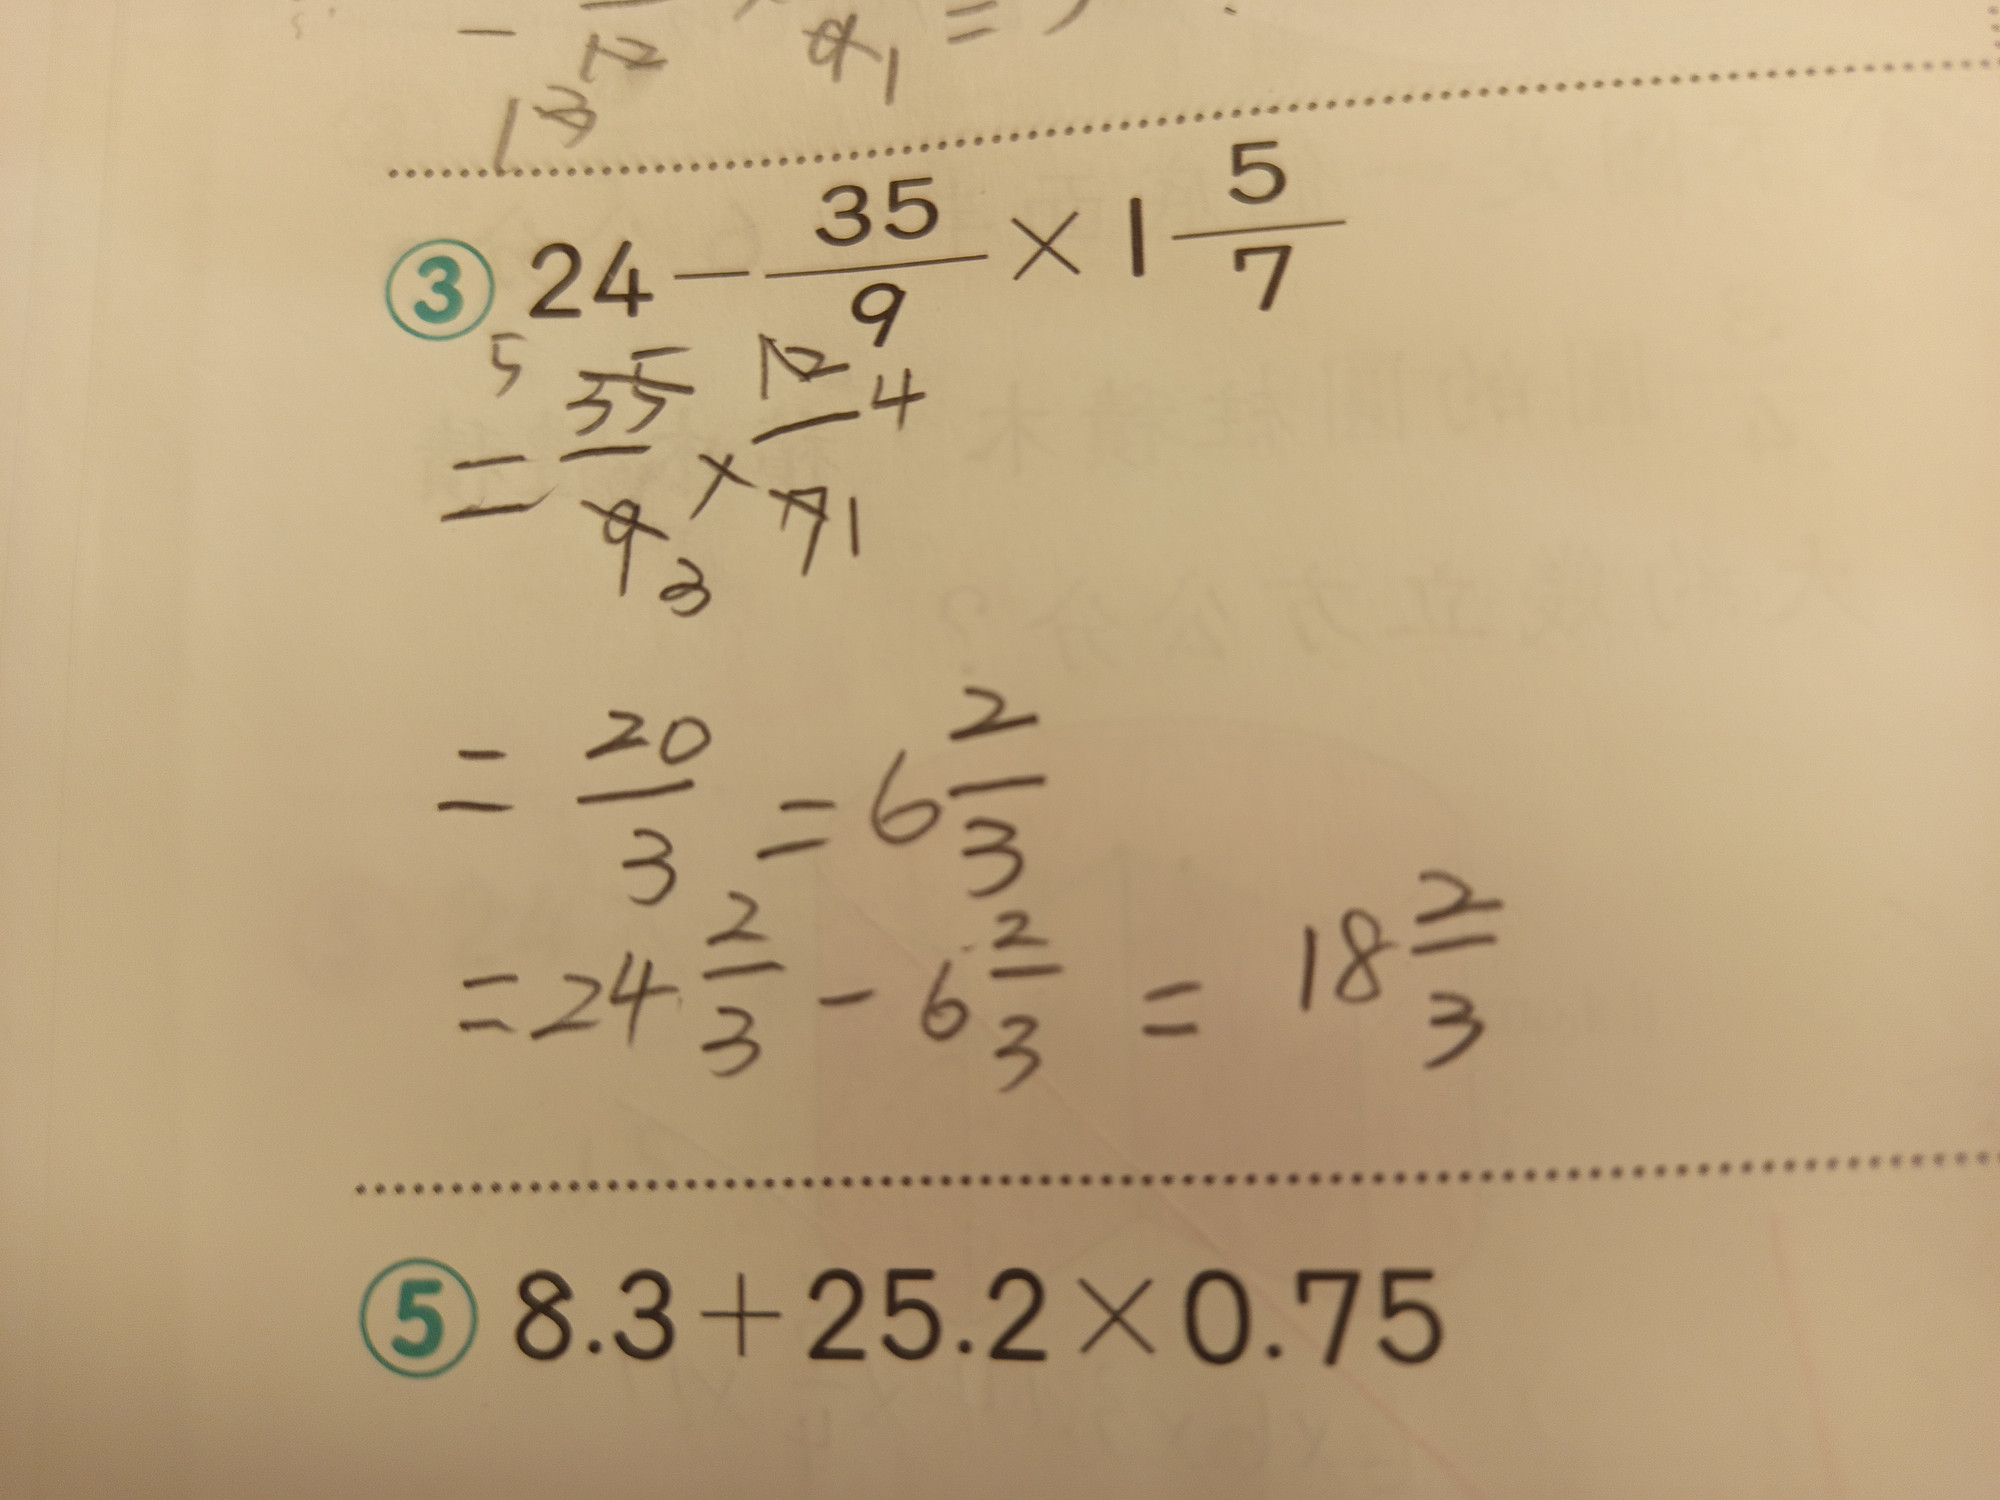 - 12 × 9 1 =
1 3
③ 24 - 35/9 × 1 5/7
= 5 35/9 3 × 12/7 4 1
= 20/3 = 6 2/3
= 24 2/3 - 6 2/3 = 18 2/3
⑤ 8.3 + 25.2 × 0.75